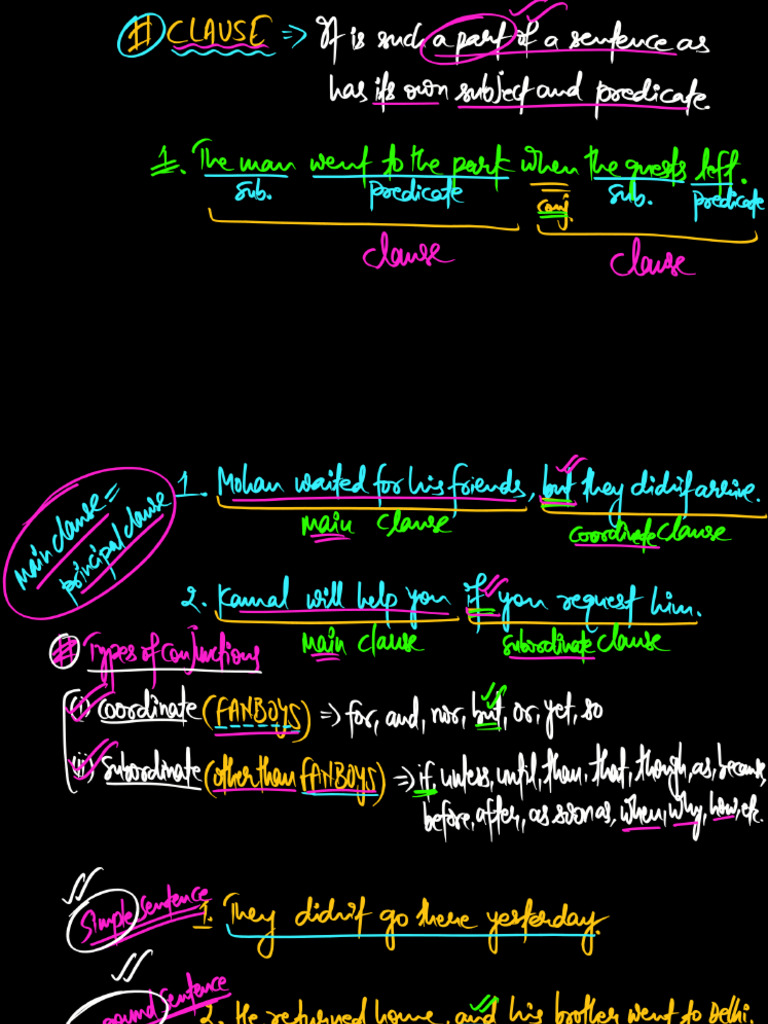 # CLAUSE ⇒ It is such a part of a sentence as
has its own subject and predicate.
1. The man went to the park when the guests left.
sub. predicate conj. sub. predicate
clause clause
1. Mohan waited for his friends, but they didn't arrive.
main clause coordinate clause
main clause =
principal clause
2. Kamal will help you if you request him.
main clause subordinate clause
# Types of conjunctions
(i) coordinate (FANBOYS) ⇒ for, and, nor, but, or, yet, so
(ii) subordinate (other than FANBOYS) ⇒ if, unless, until, than, that, though, as, because,
before, after, as soon as, when, why, how, etc.
simple sentence 1. They didn't go there yesterday.
sentence 2. He returned home, and his brother went to Delhi.